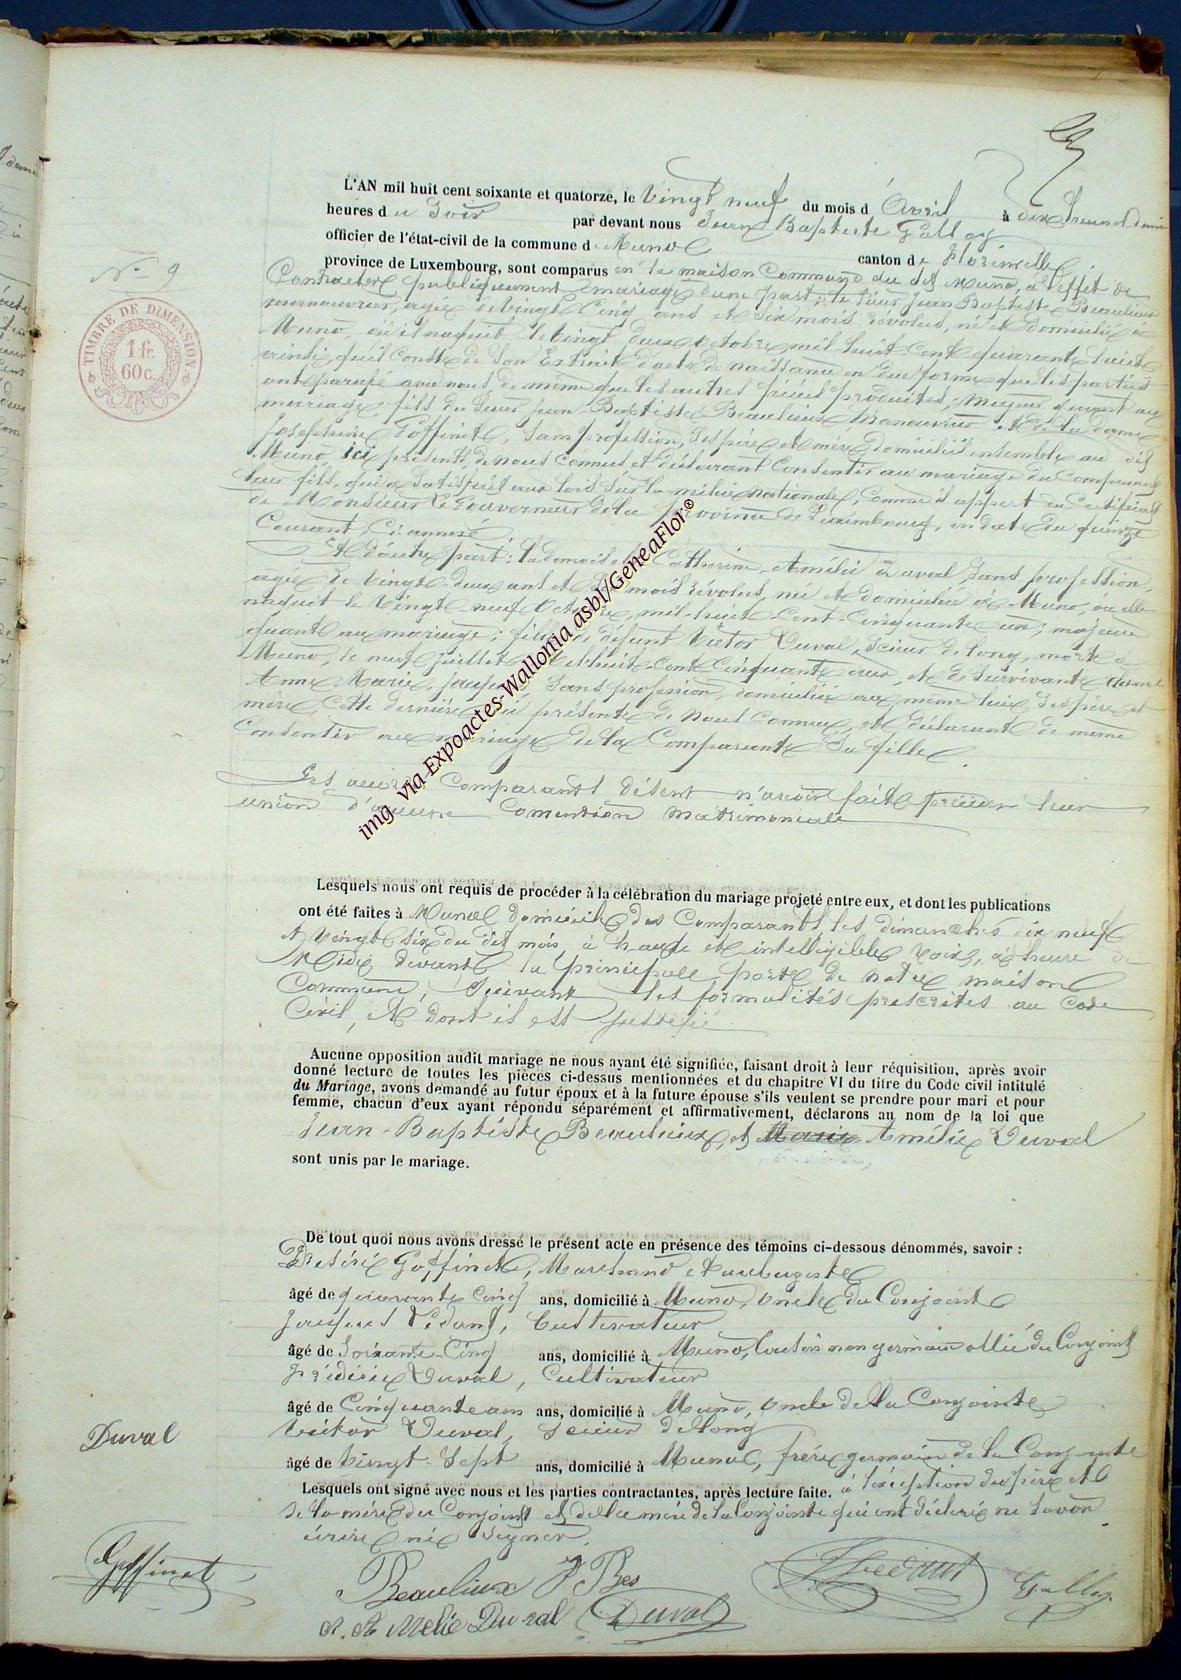 L'AN mil huit cent soixante et quatorze, le Vingt neuf du mois d'Avril à dix heures et demie
heures d u Soir par devant nous Jean Baptiste Galloy
officier de l'état-civil de la commune d Muno canton de Florenville
province de Luxembourg, sont comparus en la maison Commune du dit Muno, à l'effet de
N° 9
Contracter publiquement mariage d'une part: le Sieur Jean Baptiste Beaulieux
manouvrier, agé de vingt Cinq ans et Six mois révolus, né et domicilié à
TIMBRE DE DIMENSION
1 fr.
60 c.
Muno, où il naquit le vingt deux octobre mil huit cent quarante huit
ainsi qu'il Conste de Son Extrait d'acte de naissance en due forme que les parties
ont paraphé avec nous de même que les autres pièces produites, Majeur quant au
mariage; fils du Sieur Jean Baptiste Beaulieux Manouvrier et de la dame
Josephine Goffinet, Sans profession, Ses père et mère domiciliés ensemble au dit
Muno, ici présents, de nous Connus et déclarant Consentir au mariage du Comparant
leur fils, qui a Satisfait aux lois Sur la milice nationale, Comme il appert du Certificat
de Monsieur le Gouverneur de la province de Luxembourg, en date du quinze
Courant Ci annexé
Et d'autre part: la demoiselle Catherine Amélie Duval, Sans profession,
agée de Vingt deux ans et Six mois révolus, née et domiciliée à Muno, où elle
naquit le Vingt neuf Octobre mil huit Cent Cinquante un; majeure
quant au mariage; fille de défunt Victor Duval, Scieur de long, mort à
Muno, le neuf Juillet mil huit Cent Cinquante , et de Survivante dame
Anne Marie Sans profession, domiciliée au même lieu, Ses père et
mère, Cette dernière ici présente de nous Connue et déclarant de même
Consentir au mariage de la Comparante Sa fille.
Les Comparants disent n'avoir fait précéder leur
union d'aucune Convention matrimoniale
Lesquels nous ont requis de procéder à la célébration du mariage projeté entre eux, et dont les publications
ont été faites à Muno, domicile des Comparants les dimanches dix neuf
et Vingt Six du dit mois, à haute et intelligible voix, à heure de
Midi devant la principale porte de notre maison
Commune, Suivant les formalités prescrites au Code
Civil, et dont il est justifié
Aucune opposition audit mariage ne nous ayant été signifiée, faisant droit à leur réquisition, après avoir
donné lecture de toutes les pièces ci-dessus mentionnées et du chapitre VI du titre du Code civil intitulé
du Mariage, avons demandé au futur époux et à la future épouse s'ils veulent se prendre pour mari et pour
femme, chacun d'eux ayant répondu séparément et affirmativement, déclarons au nom de la loi que
Jean-Baptiste Beaulieux, et Marie Amélie Duval
sont unis par le mariage.
De tout quoi nous avons dressé le présent acte en présence des témoins ci-dessous dénommés, savoir :
Désiré Goffinet, Marchand et aubergiste
âgé de quarante Cinq ans, domicilié à Muno, oncle du Conjoint
Cultivateur
âgé de Soixante-Cinq ans, domicilié à Muno, Cousin non germain allié du Conjoint
Frédéric Duval, Cultivateur
âgé de Cinquante ans ans, domicilié à Muno, oncle de la Conjointe
Victor Duval, Scieur de long
Duval
âgé de Vingt-Sept ans, domicilié à Muno, frère germain de la Conjointe
Lesquels ont signé avec nous et les parties contractantes, après lecture faite. à l'exception du père et
de la mère du Conjoint et de la mère de la Conjointe qui ont déclaré ne Savoir
écrire ni Signer.
Goffinet
Beaulieux J Bes
Galloy
C. A Melie Duval Duval
img via Expoactes-Wallonia asbl/GeneaFlor®